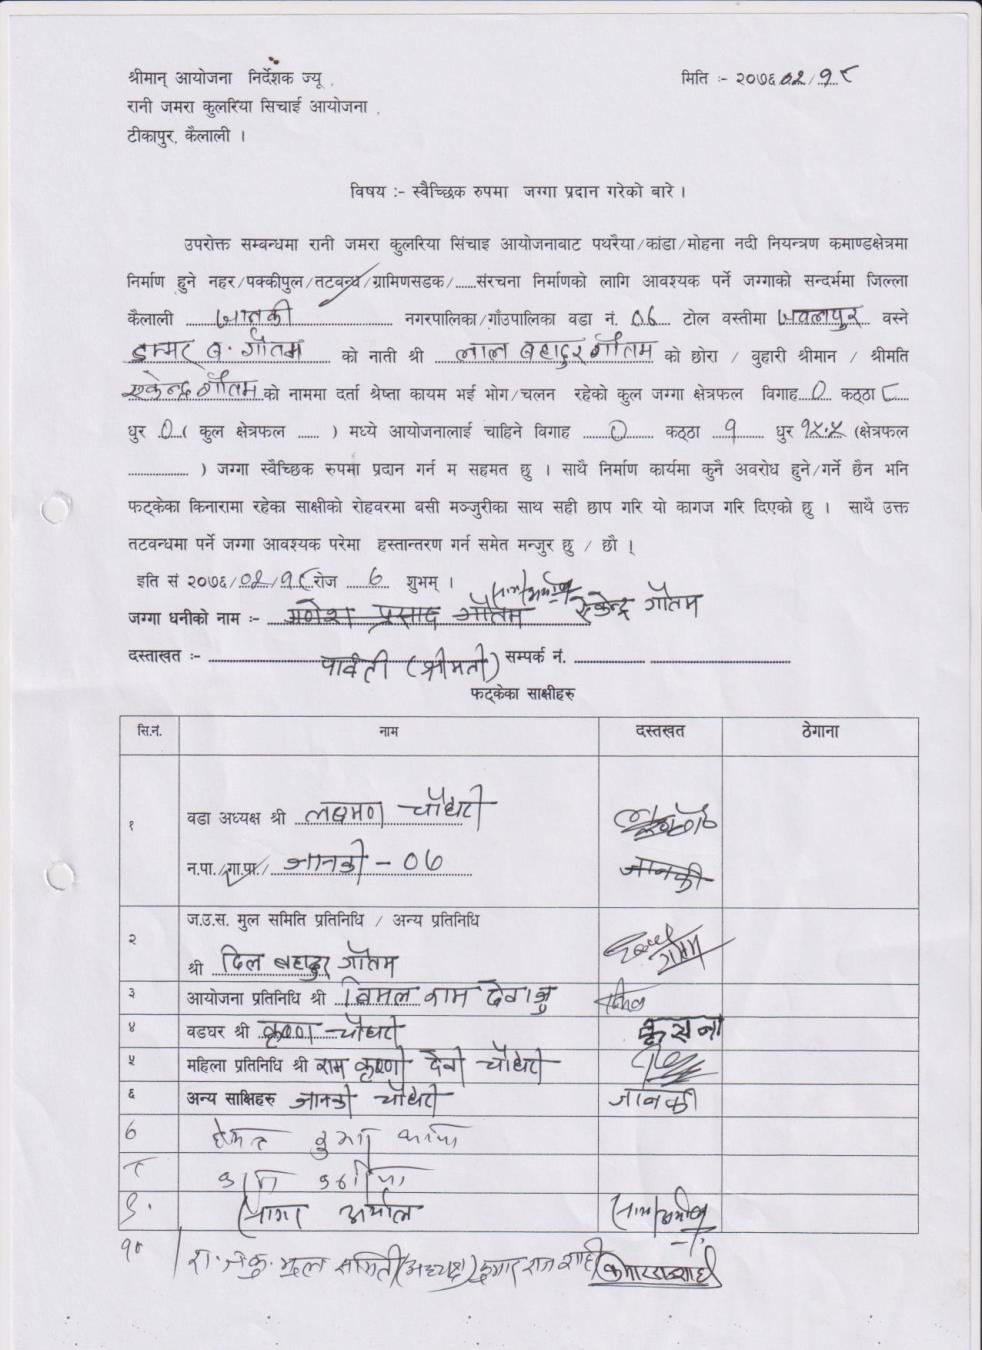 श्रीमान् आयोजना निर्देशक ज्यू,
मिति :- २०७६/०२/१८
रानी जमरा कुलरिया सिचाई आयोजना,
टीकापुर, कैलाली ।
विषय :- स्वैच्छिक रुपमा जग्गा प्रदान गरेको बारे ।
उपरोक्त सम्बन्धमा रानी जमरा कुलरिया सिंचाइ आयोजनाबाट पथरैया/कांडा/मोहना नदी नियन्त्रण कमाण्डक्षेत्रमा
निर्माण हुने नहर/पक्कीपुल/तटबन्ध/ग्रामिणसडक/......संरचना निर्माणको लागि आवश्यक पर्ने जग्गाको सन्दर्भमा जिल्ला
कैलाली जानकी नगरपालिका/गाँउपालिका वडा नं. ०७ टोल वस्तीमा जबलपुर वस्ने
डम्मर ब. गौतम को नाती श्री लाल बहादुर गौतम को छोरा / वुहारी श्रीमान / श्रीमति
रुकेन्द्र गौतम को नाममा दर्ता श्रेष्ता कायम भई भोग/चलन रहेको कुल जग्गा क्षेत्रफल विगाह ० कठ्ठा ८
धुर ० ( कुल क्षेत्रफल ...... ) मध्ये आयोजनालाई चाहिने विगाह ० कठ्ठा १ धुर १५.५ (क्षेत्रफल
.................. ) जग्गा स्वैच्छिक रुपमा प्रदान गर्न म सहमत छु । साथै निर्माण कार्यमा कुनै अवरोध हुने/गर्ने छैन भनि
फट्केका किनारामा रहेका साक्षीको रोहवरमा बसी मञ्जुरीका साथ सही छाप गरि यो कागज गरि दिएको छु । साथै उक्त
तटवन्धमा पर्ने जग्गा आवश्यक परेमा हस्तान्तरण गर्न समेत मन्जुर छु / छौ ।
इति सं २०७६/०२/१८ रोज ६ शुभम् ।
जग्गा धनीको नाम :- गणेश प्रसाद गौतम रुकेन्द्र गौतम
दस्ताखत :- पार्वती (श्रीमती) सम्पर्क नं. ..................
फट्केका साक्षीहरु
सि.नं. नाम दस्तखत ठेगाना
१ वडा अध्यक्ष श्री लक्ष्मण चौधरी
न.पा./गा.पा/ जानकी - ०७ जानकी
२ ज.उ.स. मुल समिति प्रतिनिधि / अन्य प्रतिनिधि
श्री दिल बहादुर गौतम
३ आयोजना प्रतिनिधि श्री विमल राम देवाजु
४ वडघर श्री कृष्ण चौधरी कृसना
५ महिला प्रतिनिधि श्री राम कृष्णी देवी चौधरी
६ अन्य साक्षिहरु जानकी चौधरी जानकी
७
८
९.
१० रा.ज.कु. मुल समिती (अध्यक्ष) कुमार राज शाही